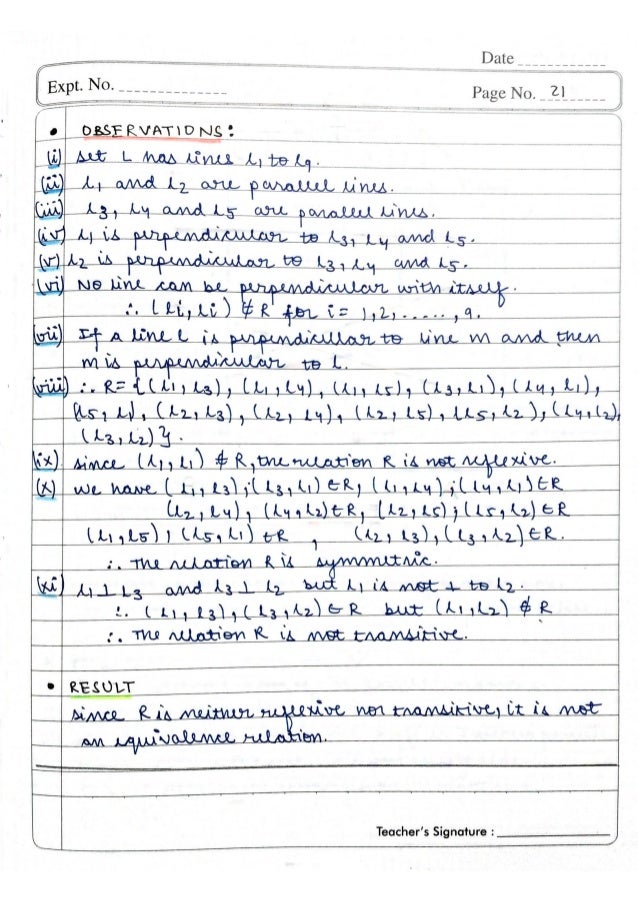 Date
Expt. No.
Page No. 21
• OBSERVATIONS:
(i) Set L has lines l1 to l9.
(ii) l1 and l2 are parallel lines.
(iii) l3, l4 and l5 are parallel lines.
(iv) l1 is perpendicular to l3, l4 and l5.
(v) l2 is perpendicular to l3, l4 and l5.
(vi) No line can be perpendicular with itself.
∴ (li, li) ∉ R for i = 1,2,......, 9.
(vii) If a line l is perpendicular to line m and then
m is perpendicular to l.
(viii) ∴ R= {(l1, l3), (l1, l4), (l1, l5), (l3, l1), (l4, l1),
(l5, l1), (l2, l3), (l2, l4), (l2, l5), (l5, l2), (l4, l2),
(l3, l2)}.
(ix) since (l1, l1) ∉ R, the relation R is not reflexive.
(x) we have (l1, l3) ; (l3, l1) ∈ R, (l1, l4) ; (l4, l1) ∈ R
(l2, l4), (l4, l2) ∈ R, (l2, l5) ; (l5, l2) ∈ R
(l1, l5) ; (l5, l1) ∈ R , (l2, l3), (l3, l2) ∈ R.
∴ The relation R is symmetric.
(xi) l1 ⊥ l3 and l3 ⊥ l2 but l1 is not ⊥ to l2.
∴ (l1, l3), (l3, l2) ∈ R but (l1, l2) ∉ R
∴ The relation R is not transitive.
• RESULT
since R is neither reflexive nor transitive, it is not
an equivalence relation.
Teacher's Signature :